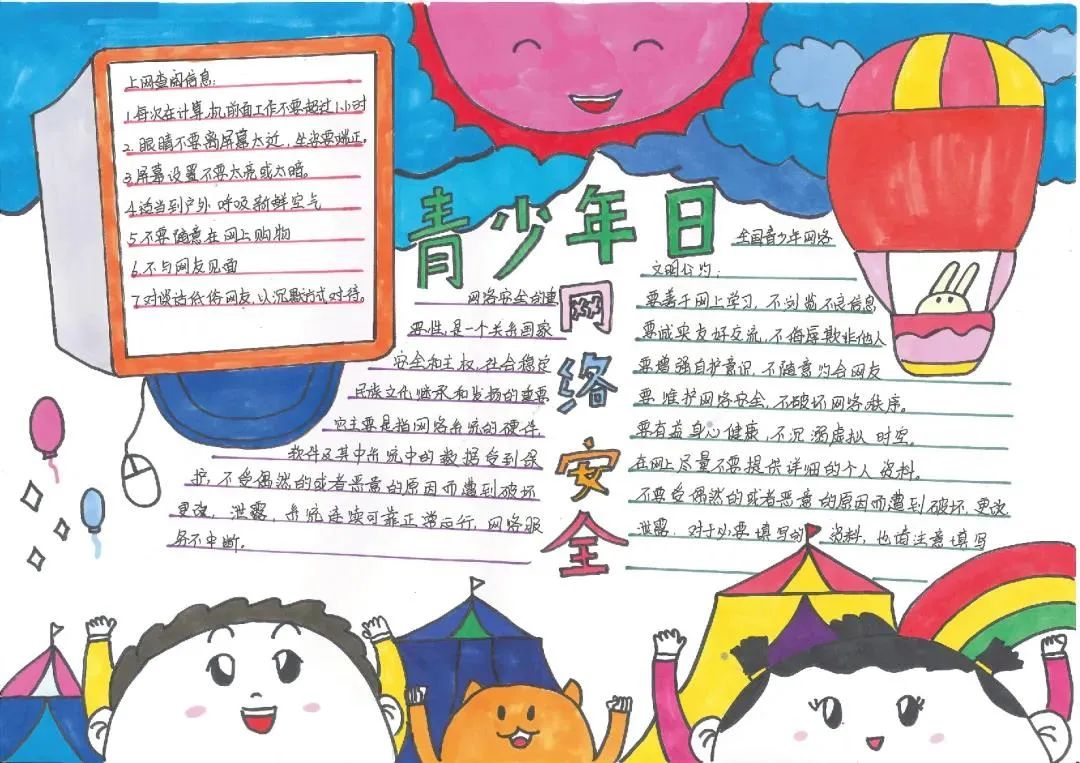 上网查阅信息:
1.每次在计算机前面工作不要超过1小时
2.眼睛不要离屏幕太近,坐姿要端正。
3.屏幕设置不要太亮或太暗。
4.适当到户外呼吸新鲜空气
5.不要随意在网上购物
6.不与网友见面
7.对谈话低俗网友,以沉默方式对待。
青少年日
网络安全
网络安全的重
要性,是一个关系国家
安全和主权,社会稳定
民族文化继承和发扬的重要
它主要是指网络系统的硬件,
软件及其中系统中的数据受到保
护,不受偶然的或者恶意的原因而遭到破坏
更改,泄露,系统连续可靠正常运行,网络服
务不中断。
全国青少年网络
文明公约:
要善于网上学习,不浏览不良信息
要诚实友好交流,不侮辱欺诈他人
要增强自护意识,不随意约会网友
要维护网络安全,不破坏网络秩序。
要有益身心健康,不沉溺虚拟时空。
在网上尽量不要提供详细的个人资料。
不要受偶然的或者恶意的原因而遭到破坏,更改
泄露,对于必要填写的资料,也请注意填写